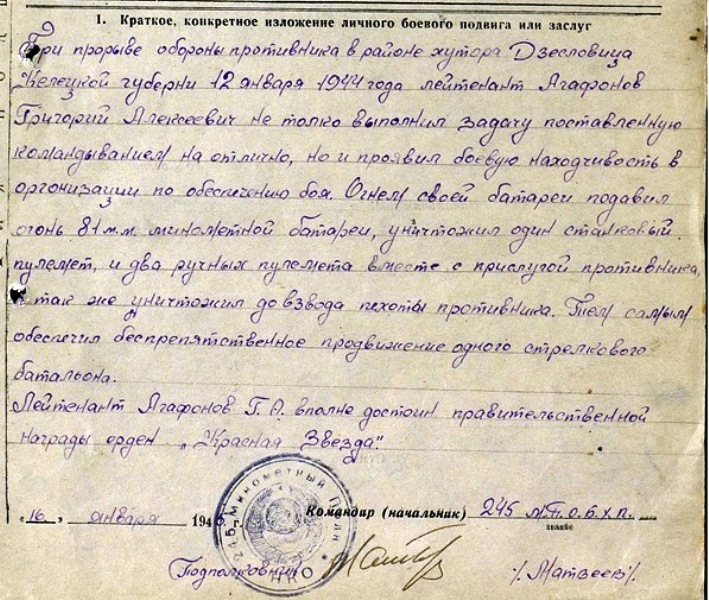 I. Краткое, конкретное изложение личного боевого подвига или заслуг
При прорыве обороны противника в районе хутора Дзесловица
Желецкой губерни 12 января 1944 года лейтенант Агафонов
Григорий Алексеевич не только выполнил задачу поставленную
командыванием на отлично, но и проявил боевую находчивость в
организации по обеспечению боя. Огнем своей батареи подавил
огонь 81 м.м. минометной батареи, уничтожил один станковый
пулемет, и два ручных пулемета вместе с прислугой противника,
а так же уничтожил до взвода пехоты противника. Тем самым
обеспечил беспрепятственное продвижение одного стрелкового
батальона.
Лейтенант Агафонов Г.А. вполне достоин правительственной
награды орден „Красная Звезда".
„16" января 194 Командир (начальник) 245
звание
Подполковник /Матвеев/
245 Минометный Полк * НКО *